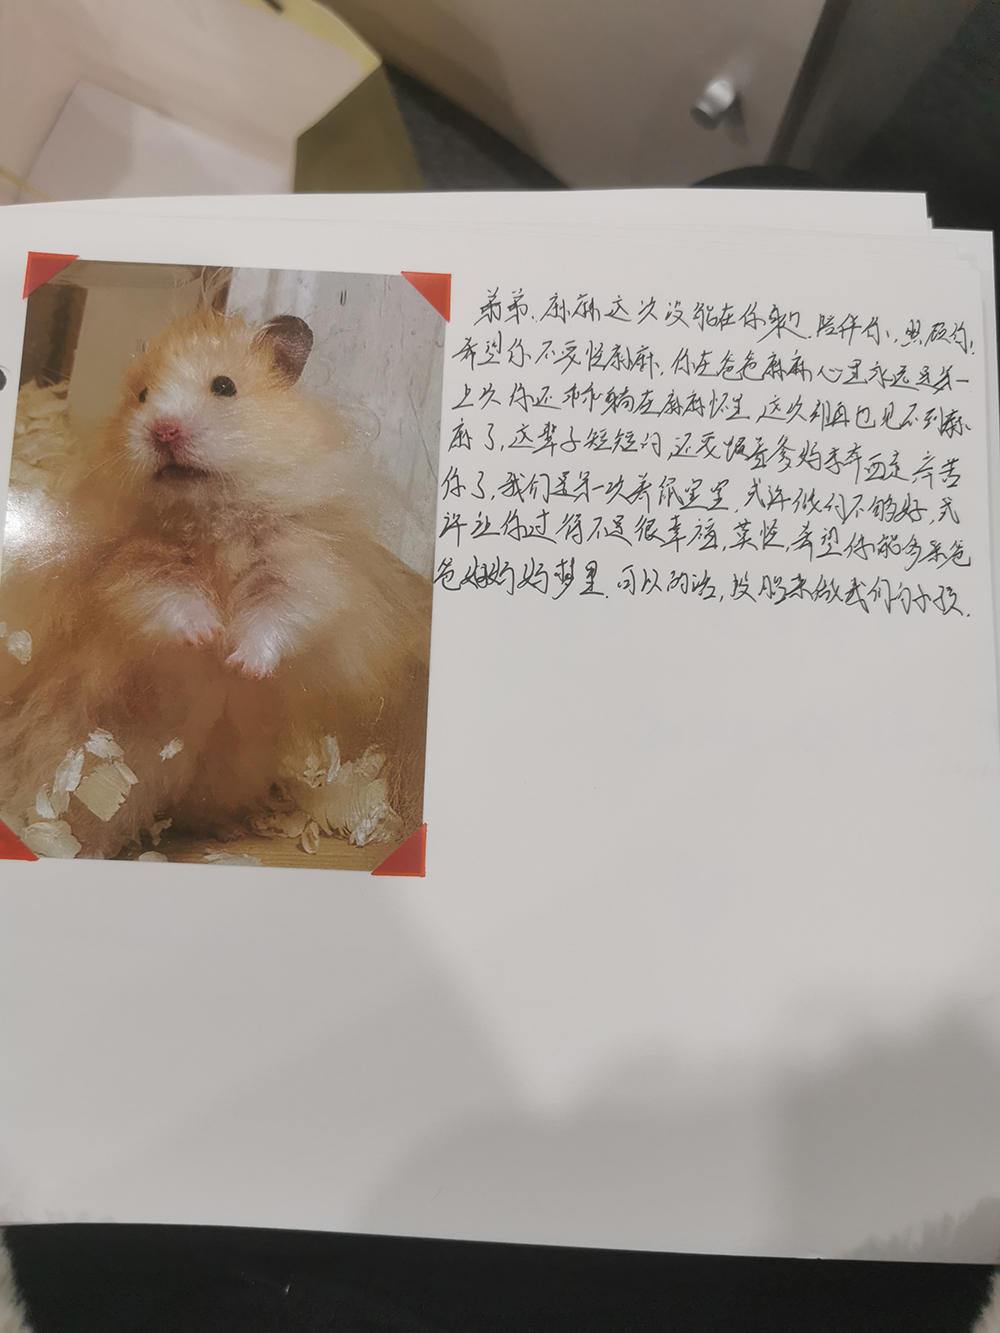 弟弟、麻麻这次没能在你身边,陪伴你,照顾你,
希望你不要怪麻麻,你在爸爸麻麻心里永远是第一
上次你还乖乖躺在麻麻怀里,这次却再也见不到麻
麻了,这辈子短短的,还要跟着爹妈东奔西走,辛苦
你了,我们是第一次养鼠宝宝,或许做的不够好,或
许让你过得不是很幸福,莫怪,希望你能多来爸
爸妈妈梦里.可以的话,投胎来做我们的小孩.